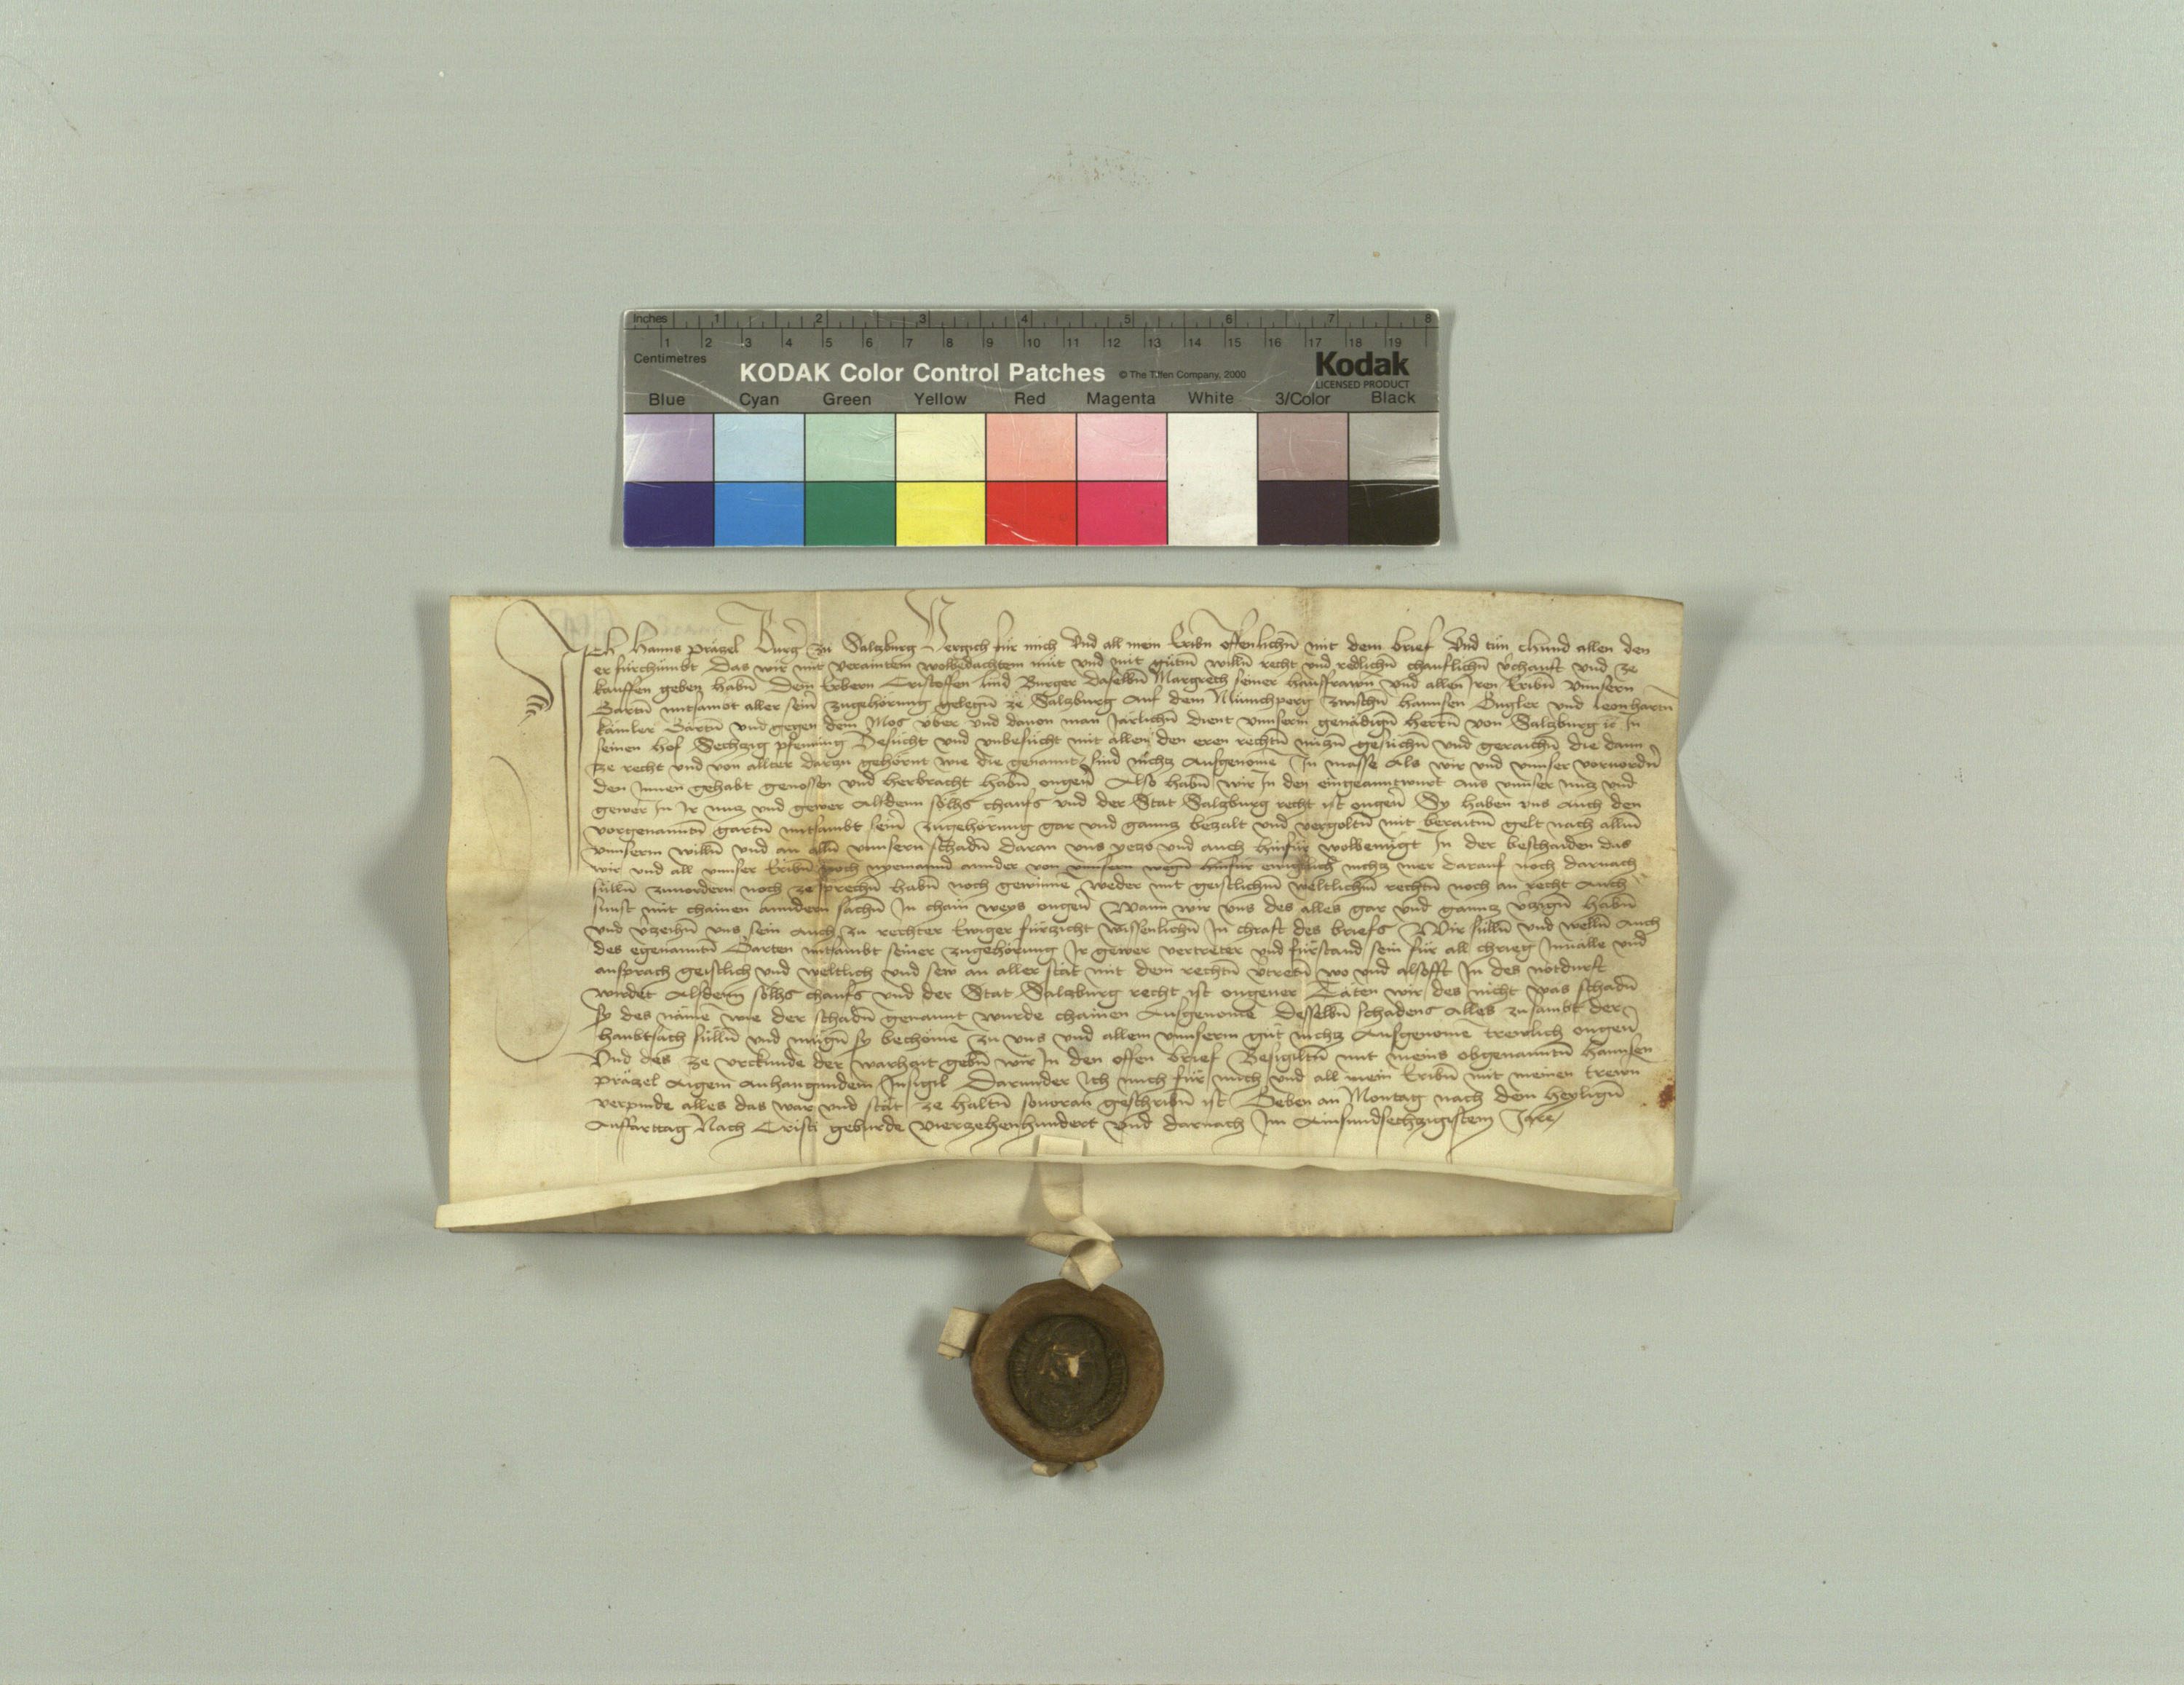 Inches 1 2 3 4 5 6 7 8
1 2 3 4 5 6 7 8 9 10 11 12 13 14 15 16 17 18 19
Centimetres
KODAK Color Control Patches © The Tiffen Company, 2000 Kodak
LICENSED PRODUCT
Blue Cyan Green Yellow Red Magenta White 3/Color Black
Ich Hanns präzel Burg zu Salzburg Vergich für mich Vnd all mein Eribn̄ offenlichn̄ mit dem brief Vnd tun chund allen den
er fürchumbt Das wir mit verainttem wolbedachtem müt vnd mit gütm̄ willn̄ recht vnd redlichn̄ chauflichn̄ v̄chauft vnd ze
kauffen geben habn̄ Dem Erbern Cristoffen lind Burger daselbn̄ Margreth seiner hausfrawn̄ vnd allen Iren Eribn̄ Vnnsern
Gartn̄ mitsambt aller sein̄ zugehörung gelegn̄ ze Salzburg auf dem Münchperg zwischn̄ Hannsen Gugler vnd Leonhartn̄
kämler Gärtn̄ vnd gegen dem Mos vber vnd dauon man järlichn̄ dient vnnserm genädign̄ herrn̄ von Salzburg ꝛc in
seinen hof Sechzig pfenning Besücht vnd vnbesücht mit allen den eren rechtn̄ nüzn̄ gesüchn̄ vnd geraichn̄ die dann
ze recht vnd von allter darzu gehörnt wie die genannt sind nichtz ausgenome In masse als wir vnd vnnser vorvordn̄
den Innen gehabt genossen vnd herbracht habn̄ ongeu̇ Also habn̄ wir In den eingeanntwurt aus vnnser nuz vnd
gewer In Ir nuz vnd gewer Alsdenn sölhs chaufs vnd der Stat Salzburg recht ist ongeu̇ Sy haben vns auch den
vorgenanntn̄ gartn̄ mitsambt sein̄ zugehörung gar vnd gannz bezalt vnd vergoltn̄ mit beraitm̄ gelt nach allm̄
vnnserm willn̄ vnd an alln̄ vnnsern schadn̄ daran vns yezo vnd auch hinfür wolbenügt In der beschaiden das
wir vnd all vnnser Eribn̄ noch nyemannd annder von vnnsern wegn̄ hinfür ewigclich nichtz mer darauf noch darnach
süllu̇ zuuordern noch ze sprechn̄ habn̄ noch gewinne weder mit geistlichm̄ weltlichm̄ rechtn̄ noch an recht Auch
sunst mit chainen anndern sachn̄ In chain weys ongeu̇ Wann wir vns des alles gar vnd gannz v̄zign̄ habn̄
vnd v̄zeihn̄ vns sein auch zu rechter Ewiger fürzicht wissenlichn̄ In chraft des briefs Wir sülln̄ vnd welln̄ Auch
des egenanntn̄ Garten mitsambt seiner zugehörung Ir gewer vertreter vnd fürstand sein für all chrieg Inualle vnd
ansprach geistlich vnd weltlich vnd sew an aller stat mit dem rechtn̄ v̄tretn̄ wo vnd alsofft In des notdurft
wirdet Alsdenn sölhs chaufs vnd der Stat Salzburg recht ist ongeuer Täten wir des nicht was schadn̄
sy des näme wie der schadn̄ genannt wurde chainen Ausgenome Desselbn̄ schadens Alles zusambt der
haubtsach sülln̄ vnd mügn̄ sy bechöme zu vns vnd allem vnnserm güt nichtz Ausgenome trewlich ongeu̇
Vnd des ze vrckunde der warhait gebn̄ wir In den offen brief Besigiltn̄ mit meins obgenanntn̄ Hannsen
präzel aigem anhangundem Insigil Darunder Ich mich für mich vnd all mein Eribn̄ mit meinen trewn
verpinde alles das war vnd stät ze haltn̄ souoran geschribn̄ ist Geben an Montag nach dem Heylign̄
Auffarttag Nach Cristi geburde vierzehenhundert vnd darnach Im Ainsundsechzigistem Jare